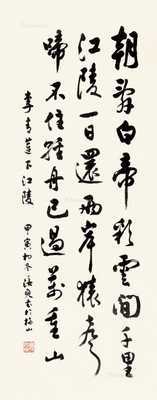 朝辭白帝彩雲間千里
江陵一日還兩岸猿聲
啼不住輕舟已過萬重山
李青蓮下江陵
甲寅初冬書於梅山